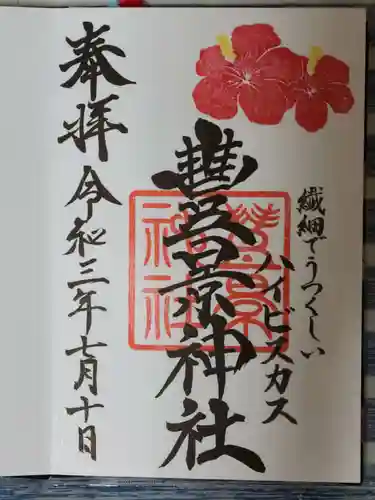 繊細でうつくしい
ハイビスカス
豊景神社
奉拝
令和三年七月十日
豊景
神社